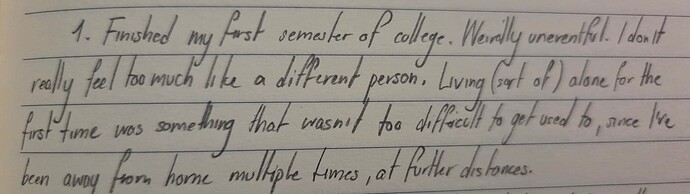 1. Finished my first semester of college. Weirdly uneventful. I don't
really feel too much like a different person. Living (sort of) alone for the
first time was something that wasn't too difficult to get used to, since I've
been away from home multiple times, at further distances.